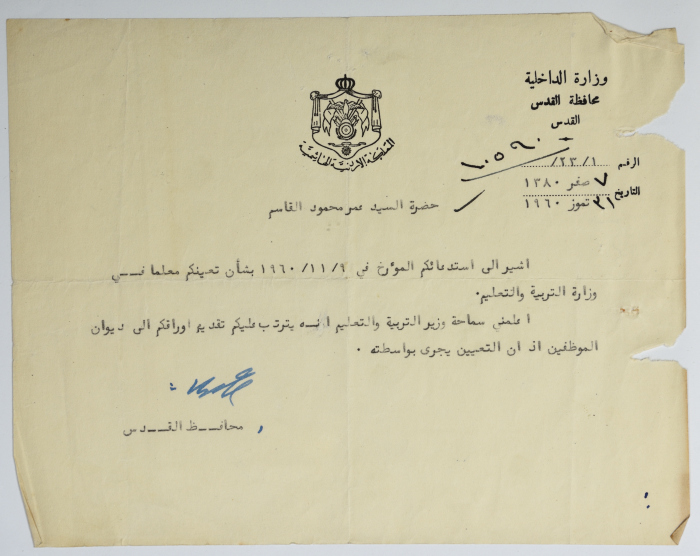 وزارة الداخلية
محافظة القدس
القدس
المملكة الاردنية الهاشمية
الرقم ١/ ٢٣/ ١٠٥٩٠
٧ صفر ١٣٨٠
التاريخ ٣١ تموز ١٩٦٠
حضرة السيد عمر محمود القاسم
اشير الى استدعائكم المؤرخ في ١٩٦٠/١١/٩ بشأن تعيينكم معلما فـــي
وزارة التربية والتعليم.
اعلمني سماحة وزير التربية والتعليم انــه يترتب عليكم تقديم اوراقكم الى ديوان
الموظفين اذ ان التعيين يجرى بواسطته .
محافــظ القــدس